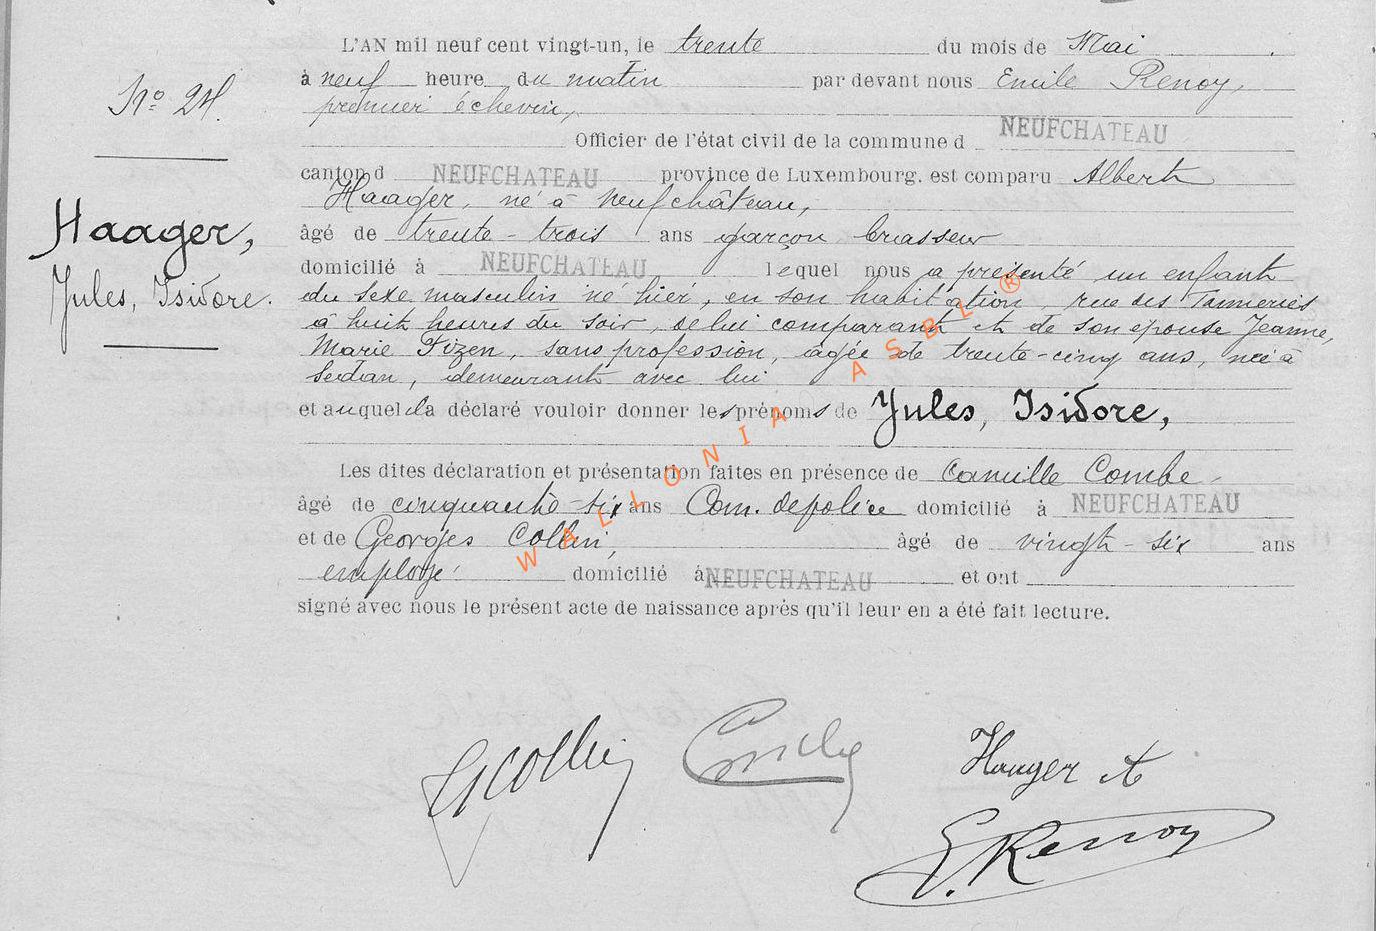 L'AN mil neuf cent vingt-un, le trente du mois de Mai
à neuf heure du matin par devant nous Emile Renoy,
premier échevin,
Officier de l'état civil de la commune d NEUFCHATEAU
canton d NEUFCHATEAU province de Luxembourg. est comparu Albert
Haager, né à Neufchâteau,
âgé de trente-trois ans garçon brasseur
domicilié à NEUFCHATEAU lequel nous a présenté un enfant
du sexe masculin né hier, en son habitation rue des Tanneries
à huit heures du soir, de lui comparant et de son épouse Jeanne,
Marie Fizen, sans profession, âgée de trente-cinq ans, née à
Sedan, demeurant avec lui
et auquel il a déclaré vouloir donner les prénoms de Jules, Isidore,
Les dites déclaration et présentation faites en présence de Camille Combe
âgé de cinquante-six ans Com. de police domicilié à NEUFCHATEAU
et de Georges Collin, âgé de vingt-six ans
employé domicilié à NEUFCHATEAU et ont
signé avec nous le présent acte de naissance après qu'il leur en a été fait lecture.
No 24.
Haager,
Jules, Isidore.
GCollin
Combe
Haager A
E. Renoy
WALLONIA ASBL ®